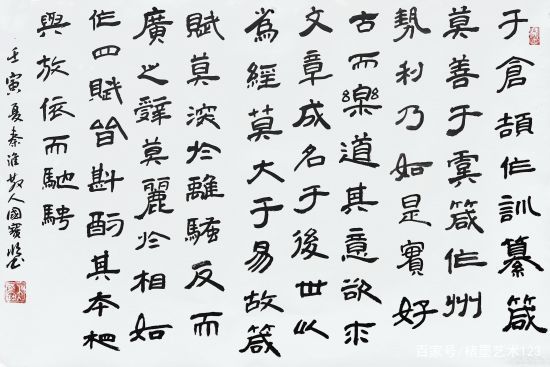 于倉頡作訓纂箴
莫善于虞箴作州
勢利乃如是實好
古而樂道其意欲求
文章成名于後世以
為經莫大于易故箴
賦莫深於離騷反而
廣之辭莫麗於相如
作四賦皆斟酌其本相
與放依而馳騁
壬寅夏秦淮散人國寶
百家号/艺术123